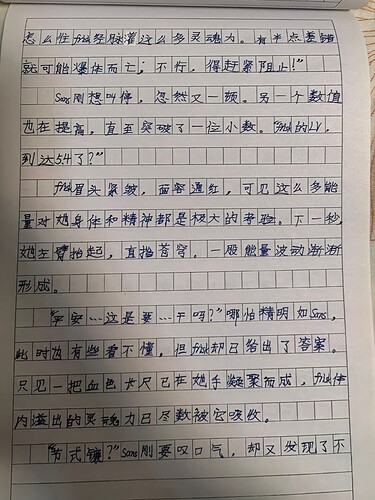 怎么性frisk经脉着这么多灵魂力。有半点差错
就可能爆体而亡；不行，得赶紧阻止！"
Sans刚想叫停，忽然又一顿。另一个数值
也在提高，直至突破了一位小数。"frisk的LV，
到达5.4了？"
frisk眉头紧皱，面容通红，可见这么多能
量对她身体和精神都是极大的考验。下一秒，
她左臂抬起，直指苍穹，一股能量波动渐渐
形成。
"平安…这是要…干吗？"哪怕精明如Sans，
此时也有些看不懂，但frisk却已给出了答案。
只见一把血色长尺已在她手凝聚而成，frisk体
内溢出的灵魂力已尽数被它吸收。
"节式镰？"Sans刚要叹口气，却又发现了不